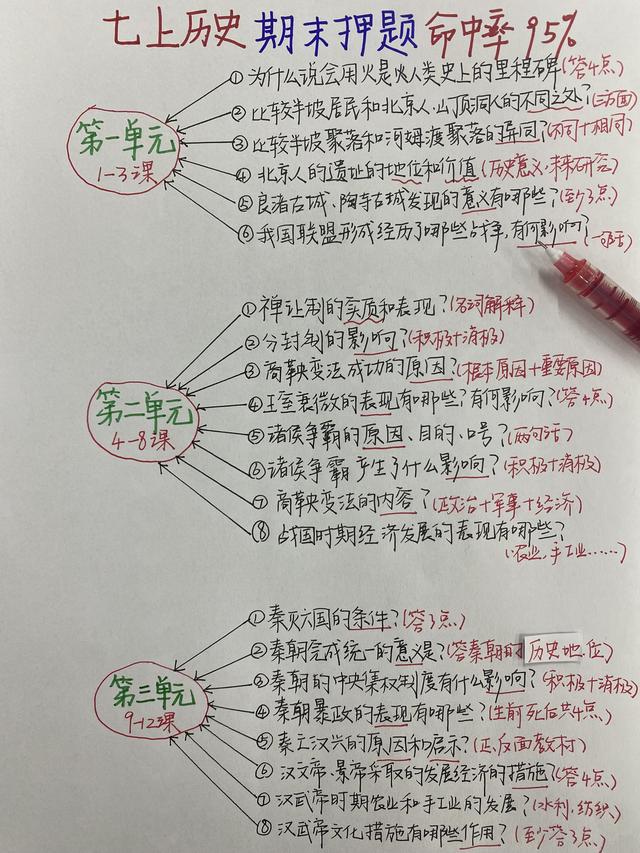 七上历史 期末押题 命中率95%
第一单元
1-3课
①为什么说会用火是人类史上的里程碑(答4点)
②比较半坡居民和北京人、山顶洞人的不同之处?(三方面)
③比较半坡聚落和河姆渡聚落的异同?(不同+相同)
④北京人的遗址的地位和价值(历史意义,未来研究)
⑤良渚古城、陶寺古城发现的意义有哪些?(至少3点)
⑥我国联盟形成经历了哪些战争,有何影响?(一句话)
第二单元
4-8课
①禅让制的实质和表现?(名词解释)
②分封制的影响?(积极+消极)
③商鞅变法成功的原因?(根本原因+重要原因)
④王室衰微的表现有哪些?有何影响?(答4点)
⑤诸侯争霸的原因、目的、口号?(两句话)
⑥诸侯争霸产生了什么影响?(积极+消极)
⑦商鞅变法的内容?(政治+军事+经济)
⑧战国时期经济发展的表现有哪些?
(农业,手工业……)
第三单元
9-12课
①秦灭六国的条件?(答3点)
②秦朝完成统一的意义是?(答秦朝的历史地位)
③秦朝的中央集权制度有什么影响?(积极+消极)
④秦朝暴政的表现有哪些?(生前死后共4点)
⑤秦亡汉兴的原因和启示?(正、反面教材)
⑥汉文帝、景帝采取的发展经济的措施?(答4点)
⑦汉武帝时期农业和手工业的发展?(水利、纺织)
⑧汉武帝文化措施有哪些作用?(至少答3点)